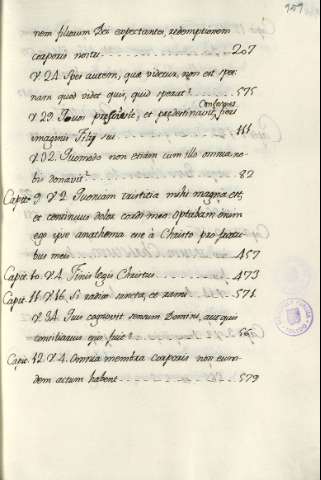 959
nem filiorum Dei expectantes, redemptionem
corporis nostri ............ 207
V. 24. Spes autem, quæ videtur, non est spes,
nam quod videt quis, quid sperat? ...... 575
V 29. Quos præscivit, et prædestinavit, Conformes fieri
imaginis Filij sui ........ 111
V. 32. Quomodo non etiam cum illo omnia no-
bis donavit? ............ 82
Capit. 9. V 2. Quoniam tristitia mihi magna est,
et continuus dolor cordi meo. Optabam enim
ego ipse anathema esse à Christo pro fratri-
bus meis ............ 457
Capit. 10. V 4. Finis legis Christus ...... 473
Capit. 11. V 16. Si radix sancta, et rami ...... 571
V. 34. Quis cognovit sensum Domini, aut quis
conciliarius ejus fuit? ........ 565
Capit. 12. V 4. Omnia membra corporis non eum-
dem actum habent ............ 579